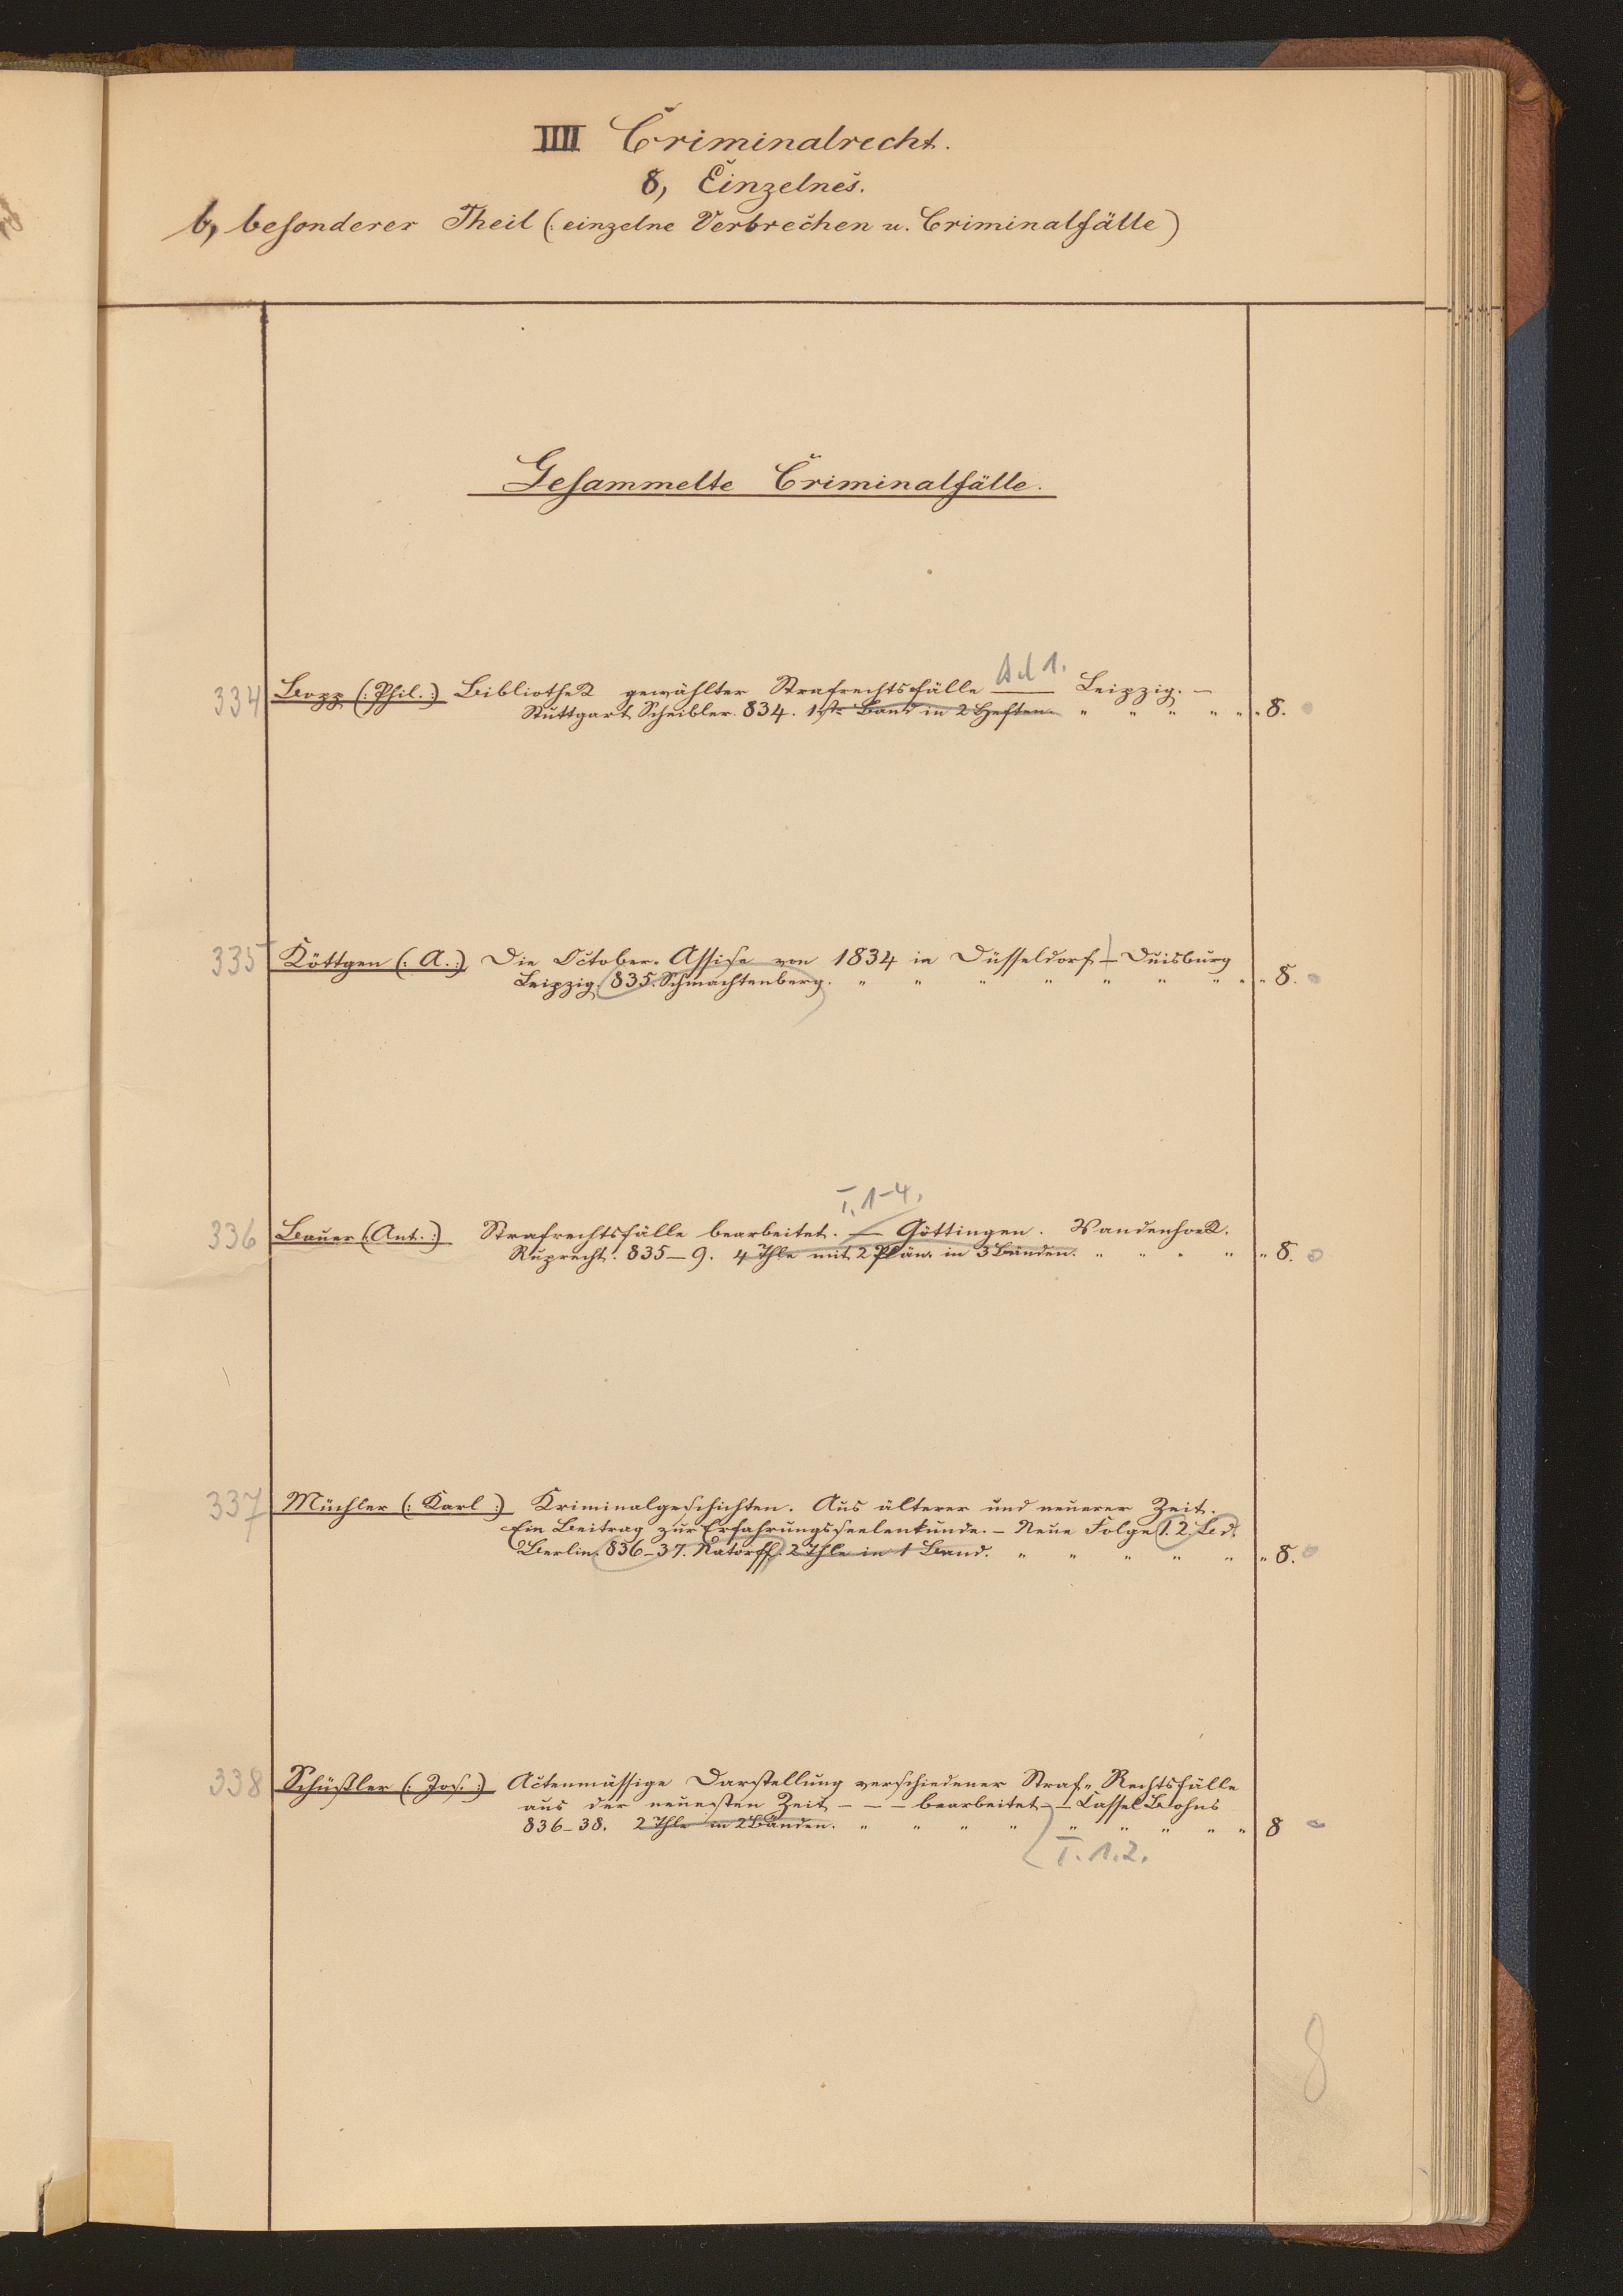 IIII Criminalrecht.
8, Einzelnes.
b, besonderer Theil (: einzelne Verbrechen u. Criminalfälle)
Gesammelte Criminalfälle.
Bd 1.
334 Bopp (: Phil. :) Bibliothek gewählter Strafrechtsfälle — Leipzig. —
Stuttgart Scheibler. 834. 1ste Band in 2 Heften. " " " " " " 8.
335 Köttgen (: A. :) Die October-Assise von 1834 in Düsseldorf — Duisburg
Leipzig. 835. Schmachtenberg. " " " " " " " " " 8.
T. 1-4.
336 Bauer (: Ant. :) Strafrechtsfälle bearbeitet. — Göttingen. Vandenhoek.
Ruprecht. 835—9. 4 Thle mit 2 Plän. in 3 Bänden. " " " " " 8.
337 Müchler (: Karl :) Kriminalgeschichten. Aus älterer und neuerer Zeit.
Ein Beitrag zur Erfahrungsseelenkunde. — Neue Folge 1. 2. Bd.
Berlin. 836-37. Natorff. 2 Thle in 1 Band. " " " " " " 8.
338 Schüßler (: Jos. :) Actenmässige Darstellung verschiedener Straf-Rechtsfälle
aus der neuesten Zeit — — — bearbeitet — — Cassel Bohns
836-38. 2 Thle in 2 Bänden. " " " " " " " " " 8
T. 1. 2.
8